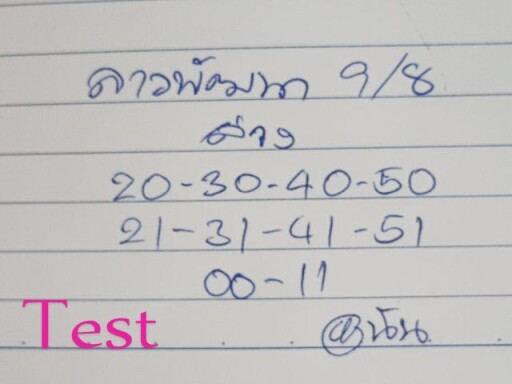 ลาวพัฒนา 9/8
ล่าง
20-30-40-50
21-31-41-51
00-11
Test